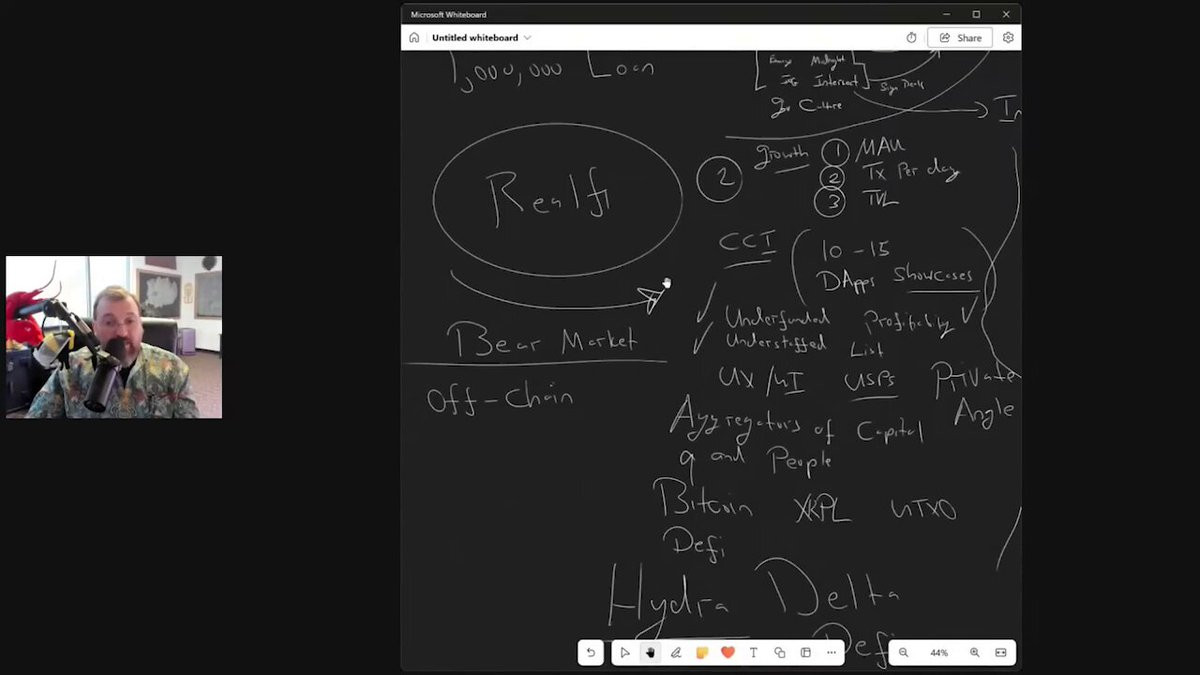 Microsoft Whiteboard
Untitled whiteboard
Share
1,000,000 Loan
Midnight
Intersect
Sign Deals
Gov Culture
Realfi
Bear Market
Off-Chain
2 Growth 1 MAU
2 Tx Per day
3 TVL
CCI
10-15
DApps Showcases
Underfunded
Understaffed
Profitability
List
UX/UI USPs Private
Angle
Aggregators of Capital
and People
Bitcoin XRPL UTXO
Defi
Hydra Delta
Defi
T
44%